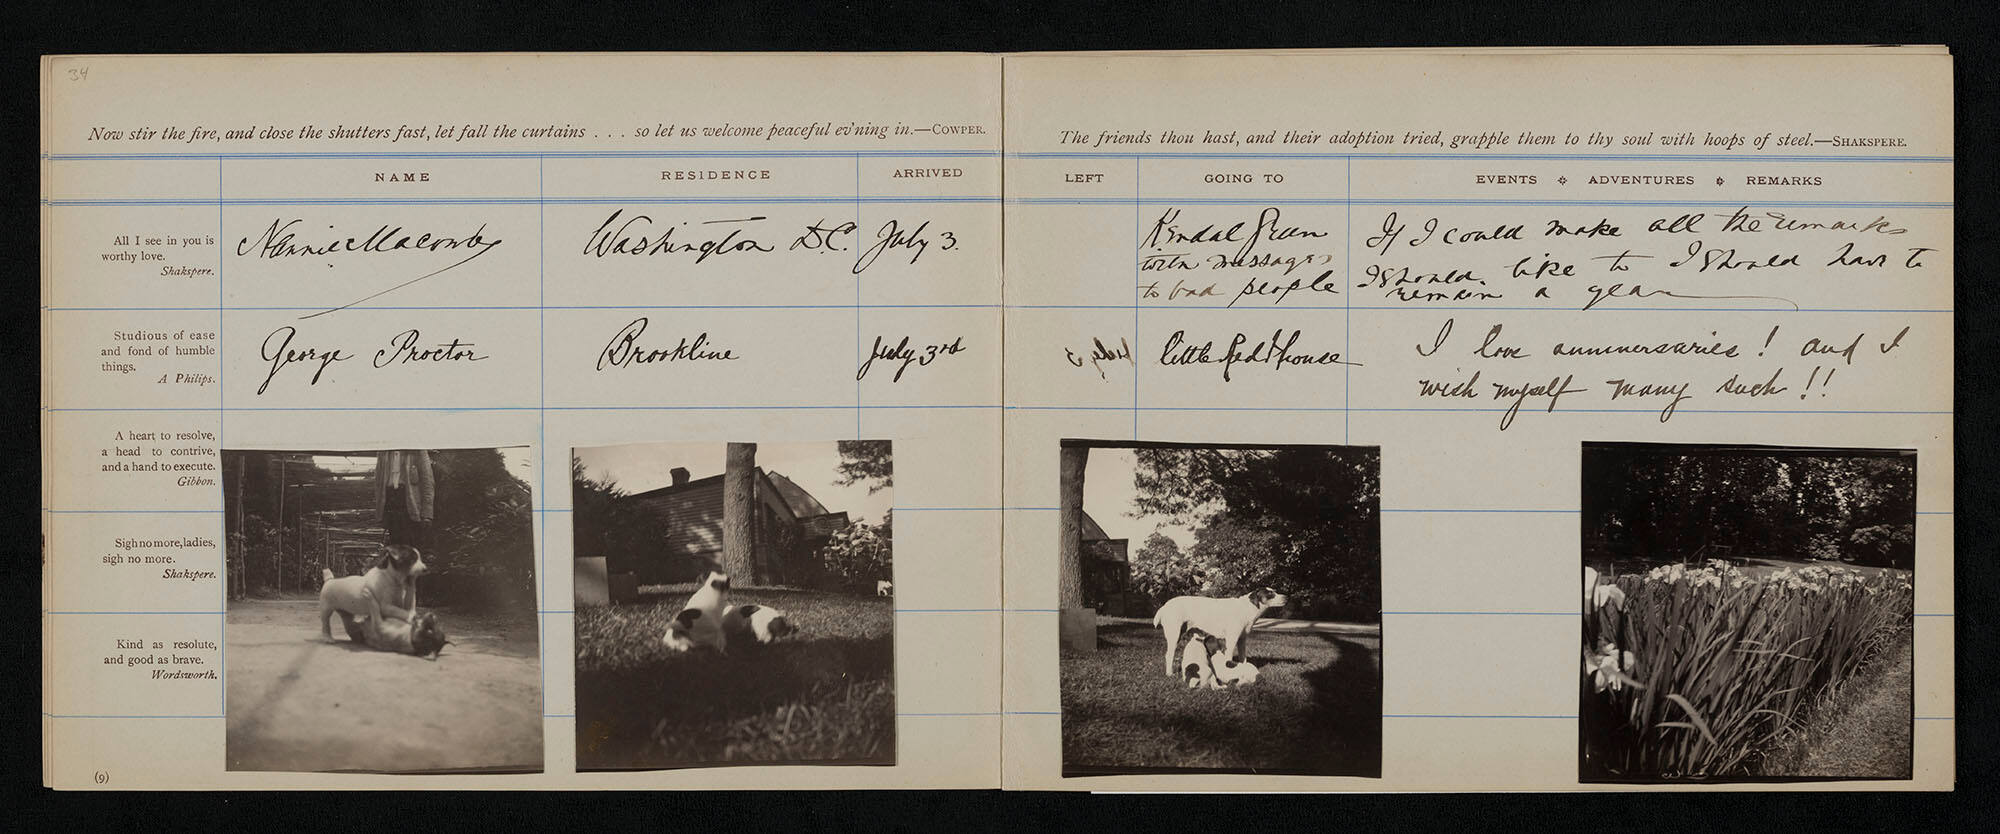 34
Now stir the fire, and close the shutters fast, let fall the curtains . . . so let us welcome peaceful ev'ning in.—COWPER.
The friends thou hast, and their adoption tried, grapple them to thy soul with hoops of steel.—SHAKSPERE.
NAME RESIDENCE ARRIVED
LEFT GOING TO EVENTS ADVENTURES REMARKS
All I see in you is
worthy love.
Shakspere.
Nannie Macomb
Washington D.C.
July 3.
Kendal Green
with messages
to bad people
If I could make all the remarks
I should like to I should have to
remain a year
Studious of ease
and fond of humble
things.
A Philips.
George Proctor
Brookline
July 3rd
little Red House
I love anniversaries! and I
wish myself many such!!
A heart to resolve,
a head to contrive,
and a hand to execute.
Gibbon.
Sigh no more, ladies,
sigh no more.
Shakspere.
Kind as resolute,
and good as brave.
Wordsworth.
(9)